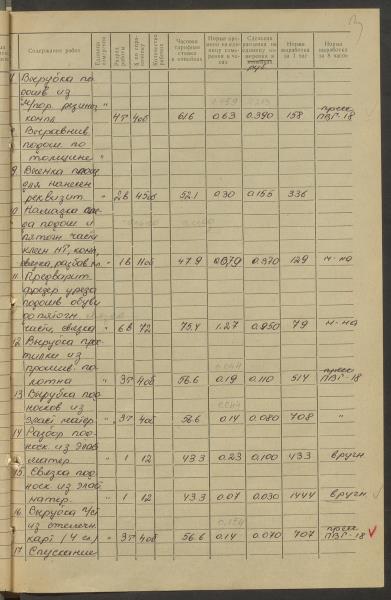 Содержание работ Единица измерения Разряд работы № по справочнику Количество рабочих Часовая тарифная ставка в копейках Норма времени на единицу измерения в часах Сдельная расценка на единицу измерения в руб Норма выработки за 1 час Норма выработки за 8 часов
Вырубка по
дошв из
м/пор. резины "
компл 4т 4об 61.6 0.63 0.390 158 пресс ПВГ-18
8 Выравнив
подош по
толщине "
9.
для нанесен
реквизит " 2в 45об 52.1 0.30 0.155 336
10 Намазка
да подош и
пяточн части
клеем НТ, конт,
связка, 1в 11об 47.9 0.79 0.370 129 м-на
11. Предварит.
фрезер уреза
подошв обуви
до пяточн.
части, связка " 6в 72 75.4 1.27 0.950 79 м-на
12 Вырубка прос
тилки из
прошив. по
лотна " 3т 4об 56.6 0.19 0.110 514 пресс ПВГ-18
13 Вырубка под
носков из
эласт матер. " 3т 4об 56.6 0.14 0.080 708 "
14 Разбор под
носк. из эласт
матер. " 1 12 43.3 0.23 0.100 433 вручн
15. Связка под
носк. из эласт
матер. " 1 12 43.3 0.07 0.030 1444 вручн
16. Вырубка
из
карт (4 сл) " 3т 4об 56.6 0.14 0.070 707 пресс ПВГ-18
17. Спускание